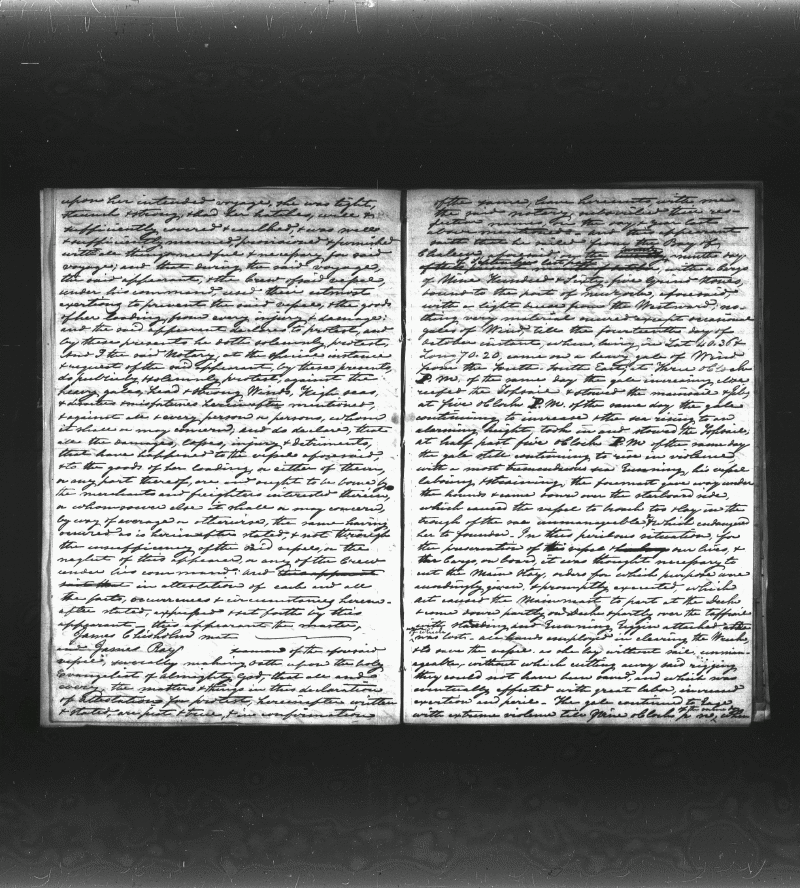 upon her intended voyage, she was tight,
staunch & strong, & had her hatches, well &
sufficiently covered & caulked; & was well
& sufficiently manned, provisioned & provided
with all things needful & necessary, for said
voyage; and that during the said voyage,
the said appearant, & the Crew of said vessel,
under his command, used their utmost
exerting to prevent the said vessel, & the goods
of her loading, from every injury & damage;
and the said appearant declares to protest, and
by these presents he doth solemnly protest,
And I the said Notary, at the special instance
& request of the said appearant, by these presents,
do publicly & solemnly protest, against the
heavy gales, hard & strong Winds, High seas,
& misfortunes hereinafter mentioned,
& against all & every person & persons, whom
it shall or may concern, and do declare, that
all the damages, losses, injury & detriments,
that have happened to the vessel aforesaid
& to the goods of her loading, or either of them,
or any part thereof, are and ought to be borne by
the merchants and freighters interested therein,
or whomsoever else it shall or may concern,
by way of average or otherwise, the same having
occured as is hereinafter stated, & not through
the insufficiency of the said vessel, or the
neglect of this appearant, or any of the Crew
under his command. And
in attestation of each and all
the facts, occurrences & circumstances herein-
after stated, expressed & set forth by this
apparant - this appearant the master,
James Chisholm mate
and James Ray seamen of the aforesaid
vessel, severally making oath upon the holy
Evangelist of Almighty God, that all and
every, the matters & things in this declaration
of Attestations for protest, hereinafter written
& stated, are just & true, & in confirmation
of the same, have hereunto, with me
the said notary, subscribed their res-
pective names on the day & year last
above mentioned - and this appearant
with them he sailed from the Bay of
of September last past with a cargo
of Nine Hundred & Sixty five Grind Stones,
bound to the port of aforesaid,
with a light breeze from the Westward, no
thing very material occured except occasional
gales of Wind, till the fourteenth day of
October instant, where, being in Lat 40.36 &
Long 70.20, came on a heavy gale of Wind
from the South-South East, at three oClock
P.M. of the same day the gale increasing, close
reefed the Topsails & stowed the mainsail & jib;
at five oClock P.M. of the same day, the gale
continuing to increase & the sea rising to an
alarming height, took in and stowed the Topsails,
at half past five oClock P.M. of the same day
the gale still continuing to rise in violence
with a most tremendous sea running, his vessel
labouring & straining, the foremast gave way under
the hounds & came down over the starboard side,
which caused the vessel to broach too & lay in the
trough of the sea unmanageable & which endangered
her to founder. In this perilous situation, for
the preservation of the vessel & our lives, &
the Cargo on board, it was thought necessary to
cut the Main Rigg, orders for which purpose were
accordingly given & promptly executed, which
act caused the Mainmast to part at the Deck,
& come down partly on deck & partly over the taffrail
with standing and Running Rigging attached
of which
was lost - all hands employed in clearing the Wreck,
& to save the vessel as she lay without sail, unman-
ageable, without which cutting away said rigging
they could not have been saved, and which was
eventually effected with great labor, increased
exertion and peril - The gale continued to rage
with extreme violence till Nine oClock P.M. of the same day, when